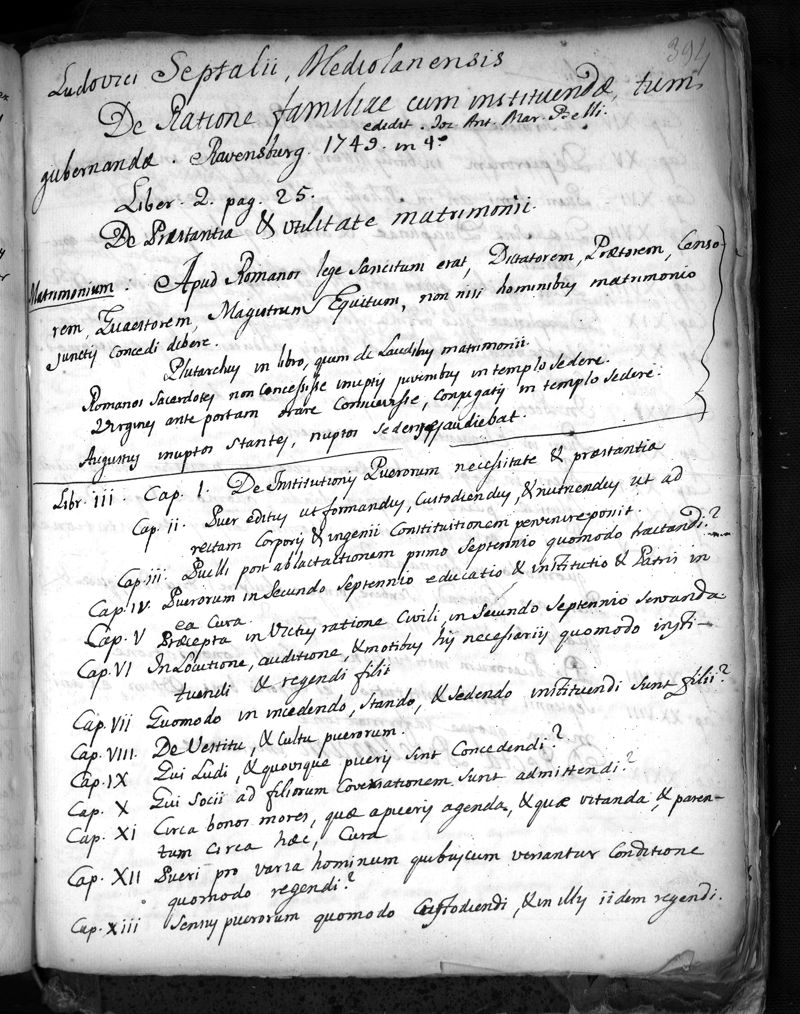 394
Ludovici Septalii, Mediolanensis
De Ratione familiae cum instituendæ, tum
edidit. Joz. Ant. Mar. Belli.
gubernandæ. Ravensburg. 1749. in 4º
Liber. 2. pag. 25.
De Præstantia & utilitate matrimonii.
Matrimonium: Apud Romanos lege sancitum erat, Dictatorem, Prætorem, Censo-
rem, Quaestorem, Magistrum Equitum, non nisi hominibus matrimonio
junctis concedi debere.
Plutarchus in libro, quem de Laudibus matrimonii.
Romanos Sacerdotes non concessisse inuptis juvenibus in templo sedere.
Virgines ante portam orare consuevisse, conjugatis in templo sedere.
Augustus inuptos stantes, nuptos sedens audiebat.
Libr. III. Cap. 1. De Institutionis Puerorum necessitate & præstantia
Cap. ii. Puer editus ut formandus, custodiendus, & nutriendus ut ad
rectam Corporis & ingenii Constituitionem pervenire possit.
Cap. iii. Puelli post ablactationem primo septennio quomodo tractandi?
Cap. IV. Puerorum in Secundo Septennio educatio & institutio & Patris in
ea Cura.
Cap. V Præcepta in Victus ratione Civili, in Secundo Septennio servanda
Cap. VI In Locutione, auditione, & motibus his necessariis quomodo insti-
tuendi & regendi filii
Cap. VII Quomodo in incedendo, stando, & sedendo instituendi sunt filii?
Cap. VIII. De Vestitu, & cultu puerorum.
Cap. IX Qui Ludi, & quousque pueris sint Concedendi?
Cap. X Qui Socii ad filiorum Coversationem sunt admittendi?
Cap. XI Circa bonos mores, quæ a pueris agenda, & quæ vitanda, & paren-
tum circa hæc, Cura
Cap. XII Pueri pro varia hominum quibuscum versantur Conditione
quomodo regendi?
Cap. xiii Sensus puerorum quomodo Custodiendi, & in illis iidem regendi.